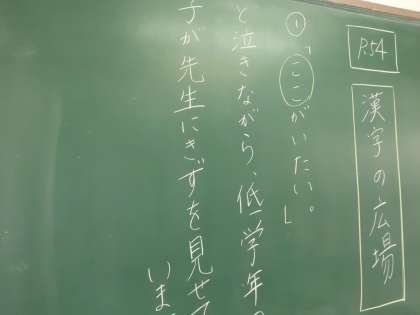 P.54
漢字の広場
①「ここがいたい。」
と泣きながら、低学年の
子が先生にきずを見せて
いま